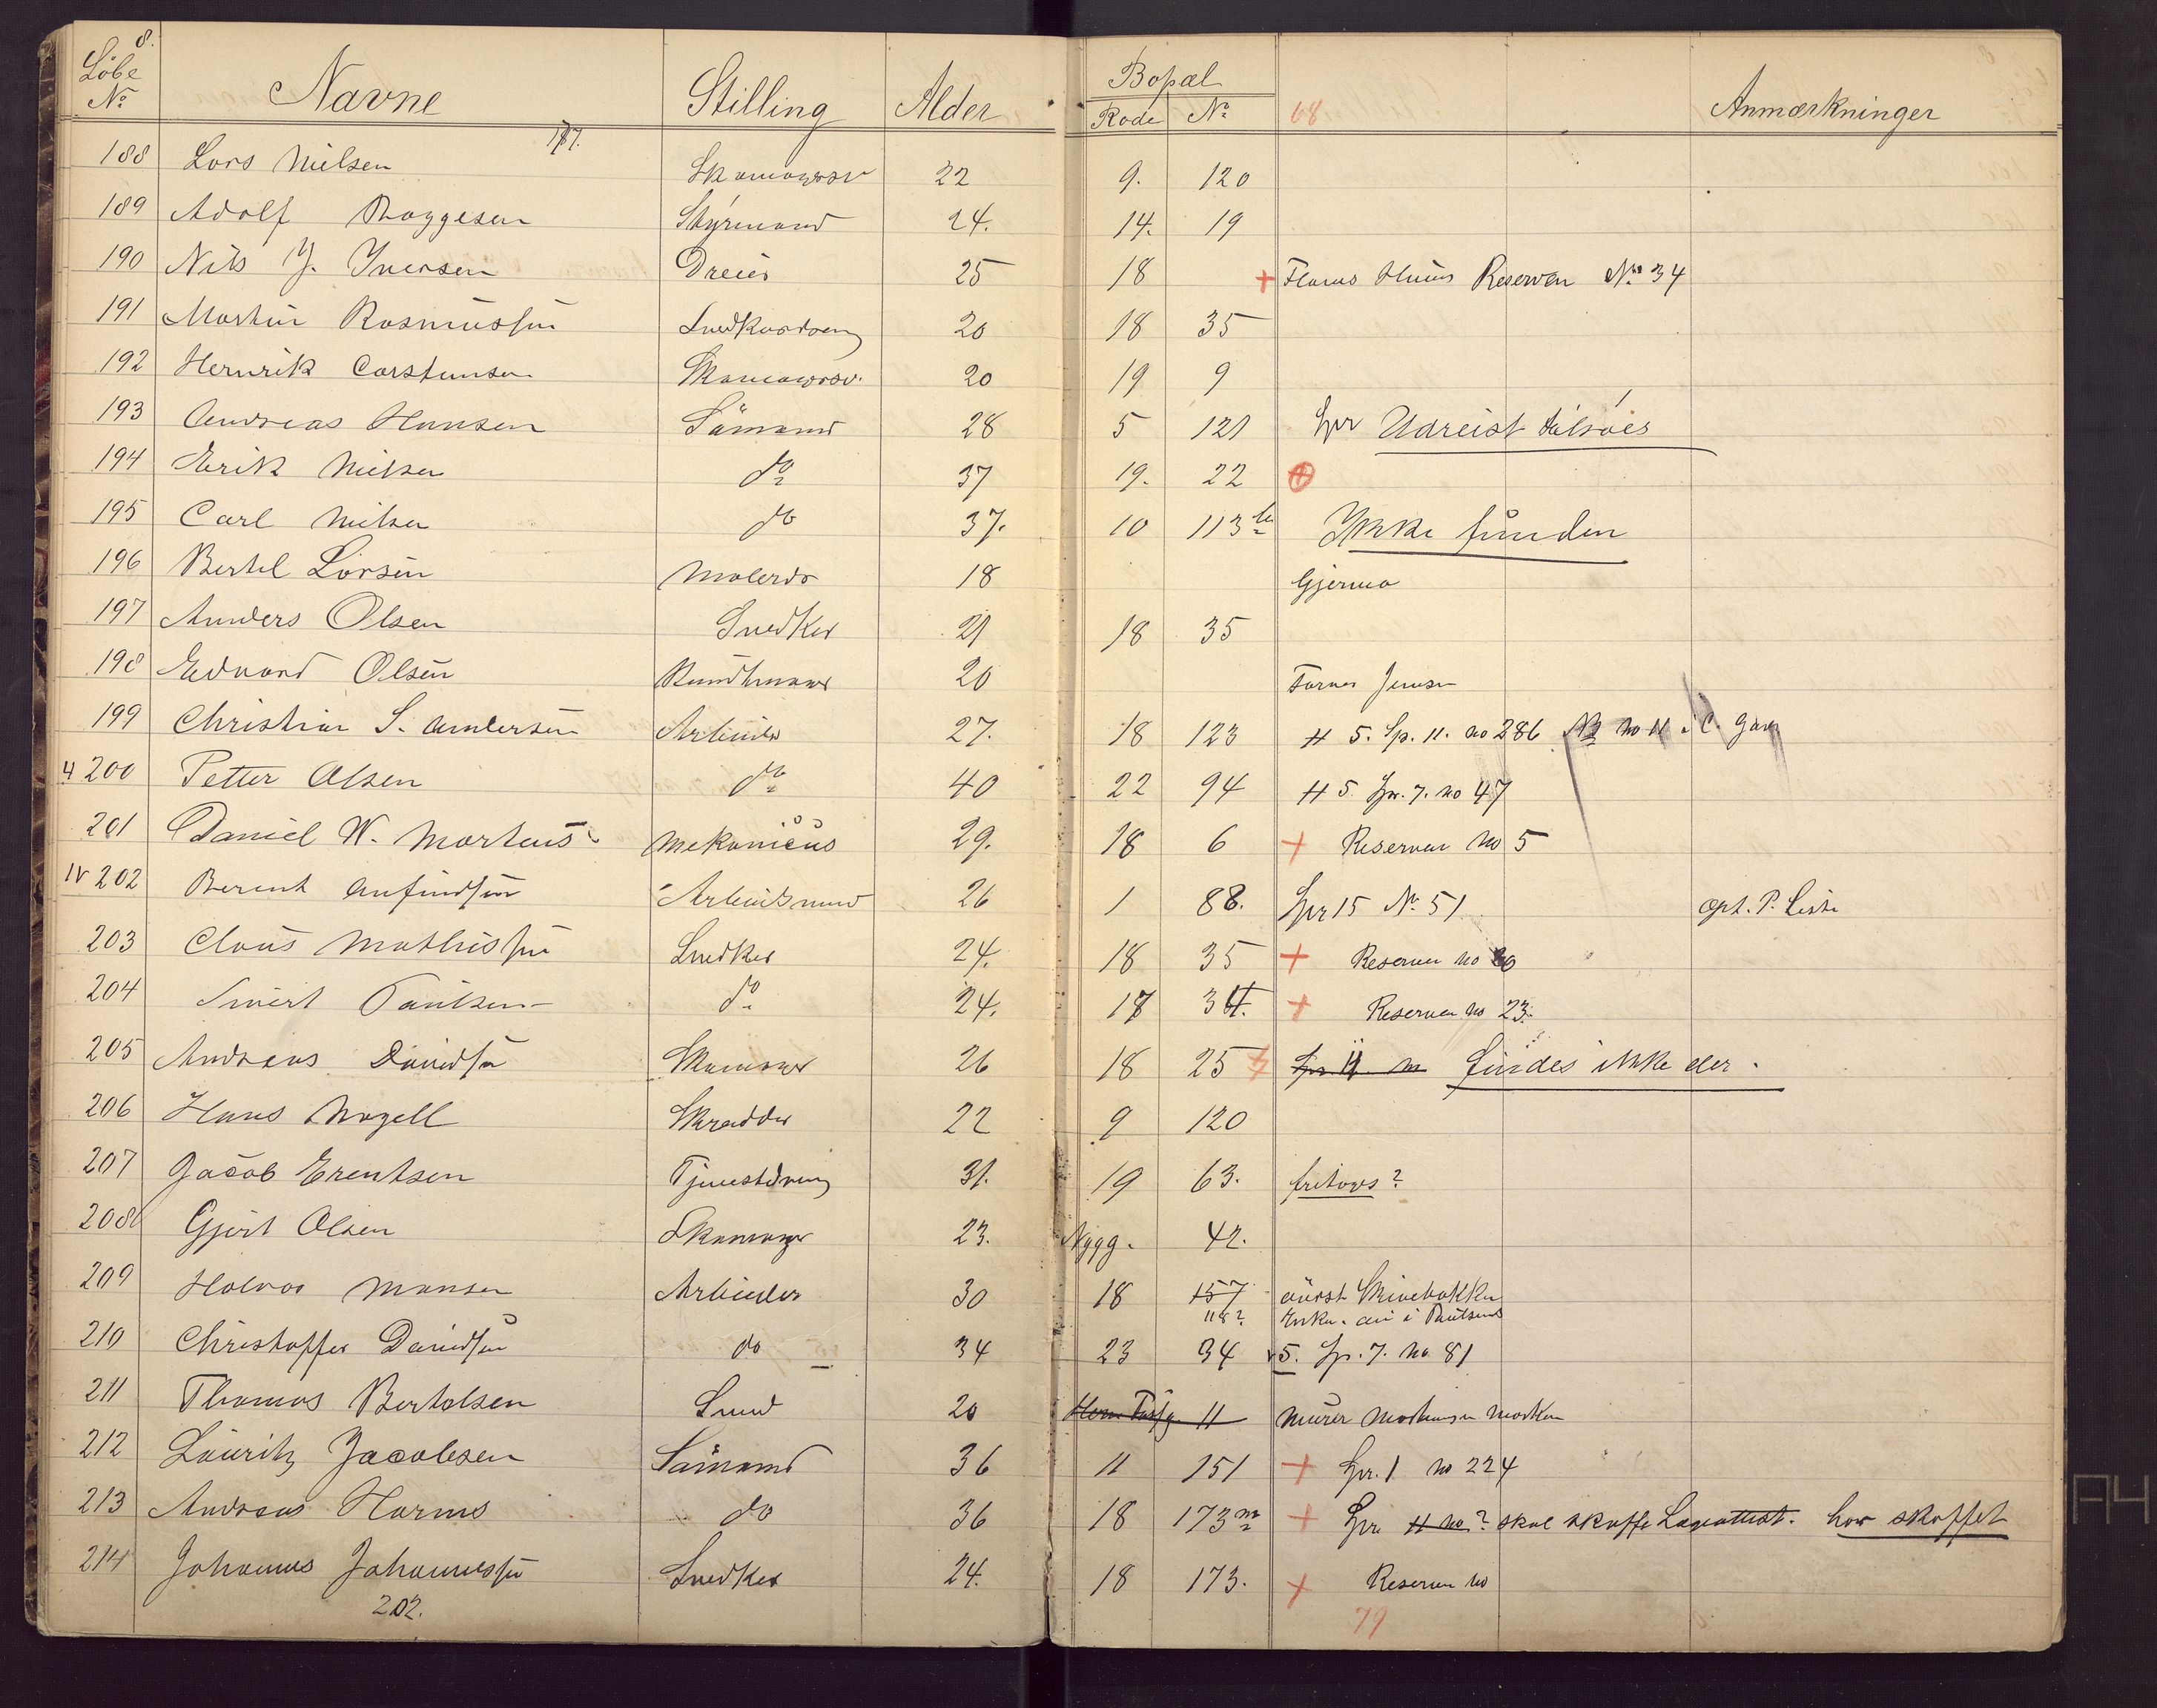 8.
Löbe No Navne Stilling Alder Bopæl Rode No 68 Anmærkninger
187.
188 Lars Nielsen Skomagersv 22 9. 120
189 Adolf Styrmand 24. 14. 19
190 Nils J. Iversen Dreier 25 18 + Hans Huus Reserven No 34
191 Martin Rasmussen 20 18 35
192 Hernrik Carstensen Skomagersv. 20 19 9
193 Andreas Hansen Sömand 28 5 121 Spr Udreist tilsöes
194 Erik Nielsen do 37 19. 22 +
195 Carl Nielsen do 37. 10 113 b Ikke funden
196 Bertel Larsen Malerdr 18 Gjerma
197 Anders Olsen Snedker 21 18 35
198 Edvard Olsen 20 Farver Jensen
199 Christian S. Andersen Arbeider 27. 18 123 H 5. Sp. 11. no 286 No 11 i C. Gaar
4 200 Petter Olsen do 40 22 94 H 5 Spr. 7. no 47
201 Daniel W. Martens Mekanicus 29. 18 6 + Reserven No 5
IV 202 Berent Anfindsen Arbeidsmand 26 1 88. Spr 15 No 51 opt. P. Liste
203 Claus Mathissen Snedker 24. 18 35 + Reserven no
204 Sivert Paulsen do 24. 17 34. + Reserven No 23.
205 Andreas Davidsen Skomager 26 18 25 + Spr 11 no findes ikke der.
206 Hans Skrædder 22 9 120
207 Jacob Erentsen Tjenestdreng 31. 19 63. fritages?
208 Gjert Olsen Skomager 23. Nygg. 42.
209 Halvor Monsen Arbeider 30 18 157 överst Skivebakken
118? Enke. i Paulsens
210 Christoffer Davidsen do 34 23 94 5. Sp. 7. No 81
211 Thomas Bertelsen Smed 20 11 Murer Marken
212 Lauritz Jacobsen Sömand 36 11 151 + Spr. 1 no 224
213 Andreas Harms do 36 18 173 + Spr H no? skal skaffe Lægeattest. har skaffet
214 Johannes Johannessen Snedker 24. 18 173. + Reserven No
202. 79